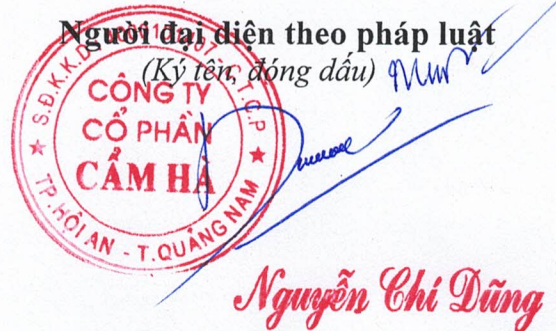 Người đại diện theo pháp luật
(Ký tên, đóng dấu)
CÔNG TY
CỔ PHẦN
CẨM HÀ
TP. HỘI AN - T. QUẢNG NAM
Nguyễn Chí Dũng